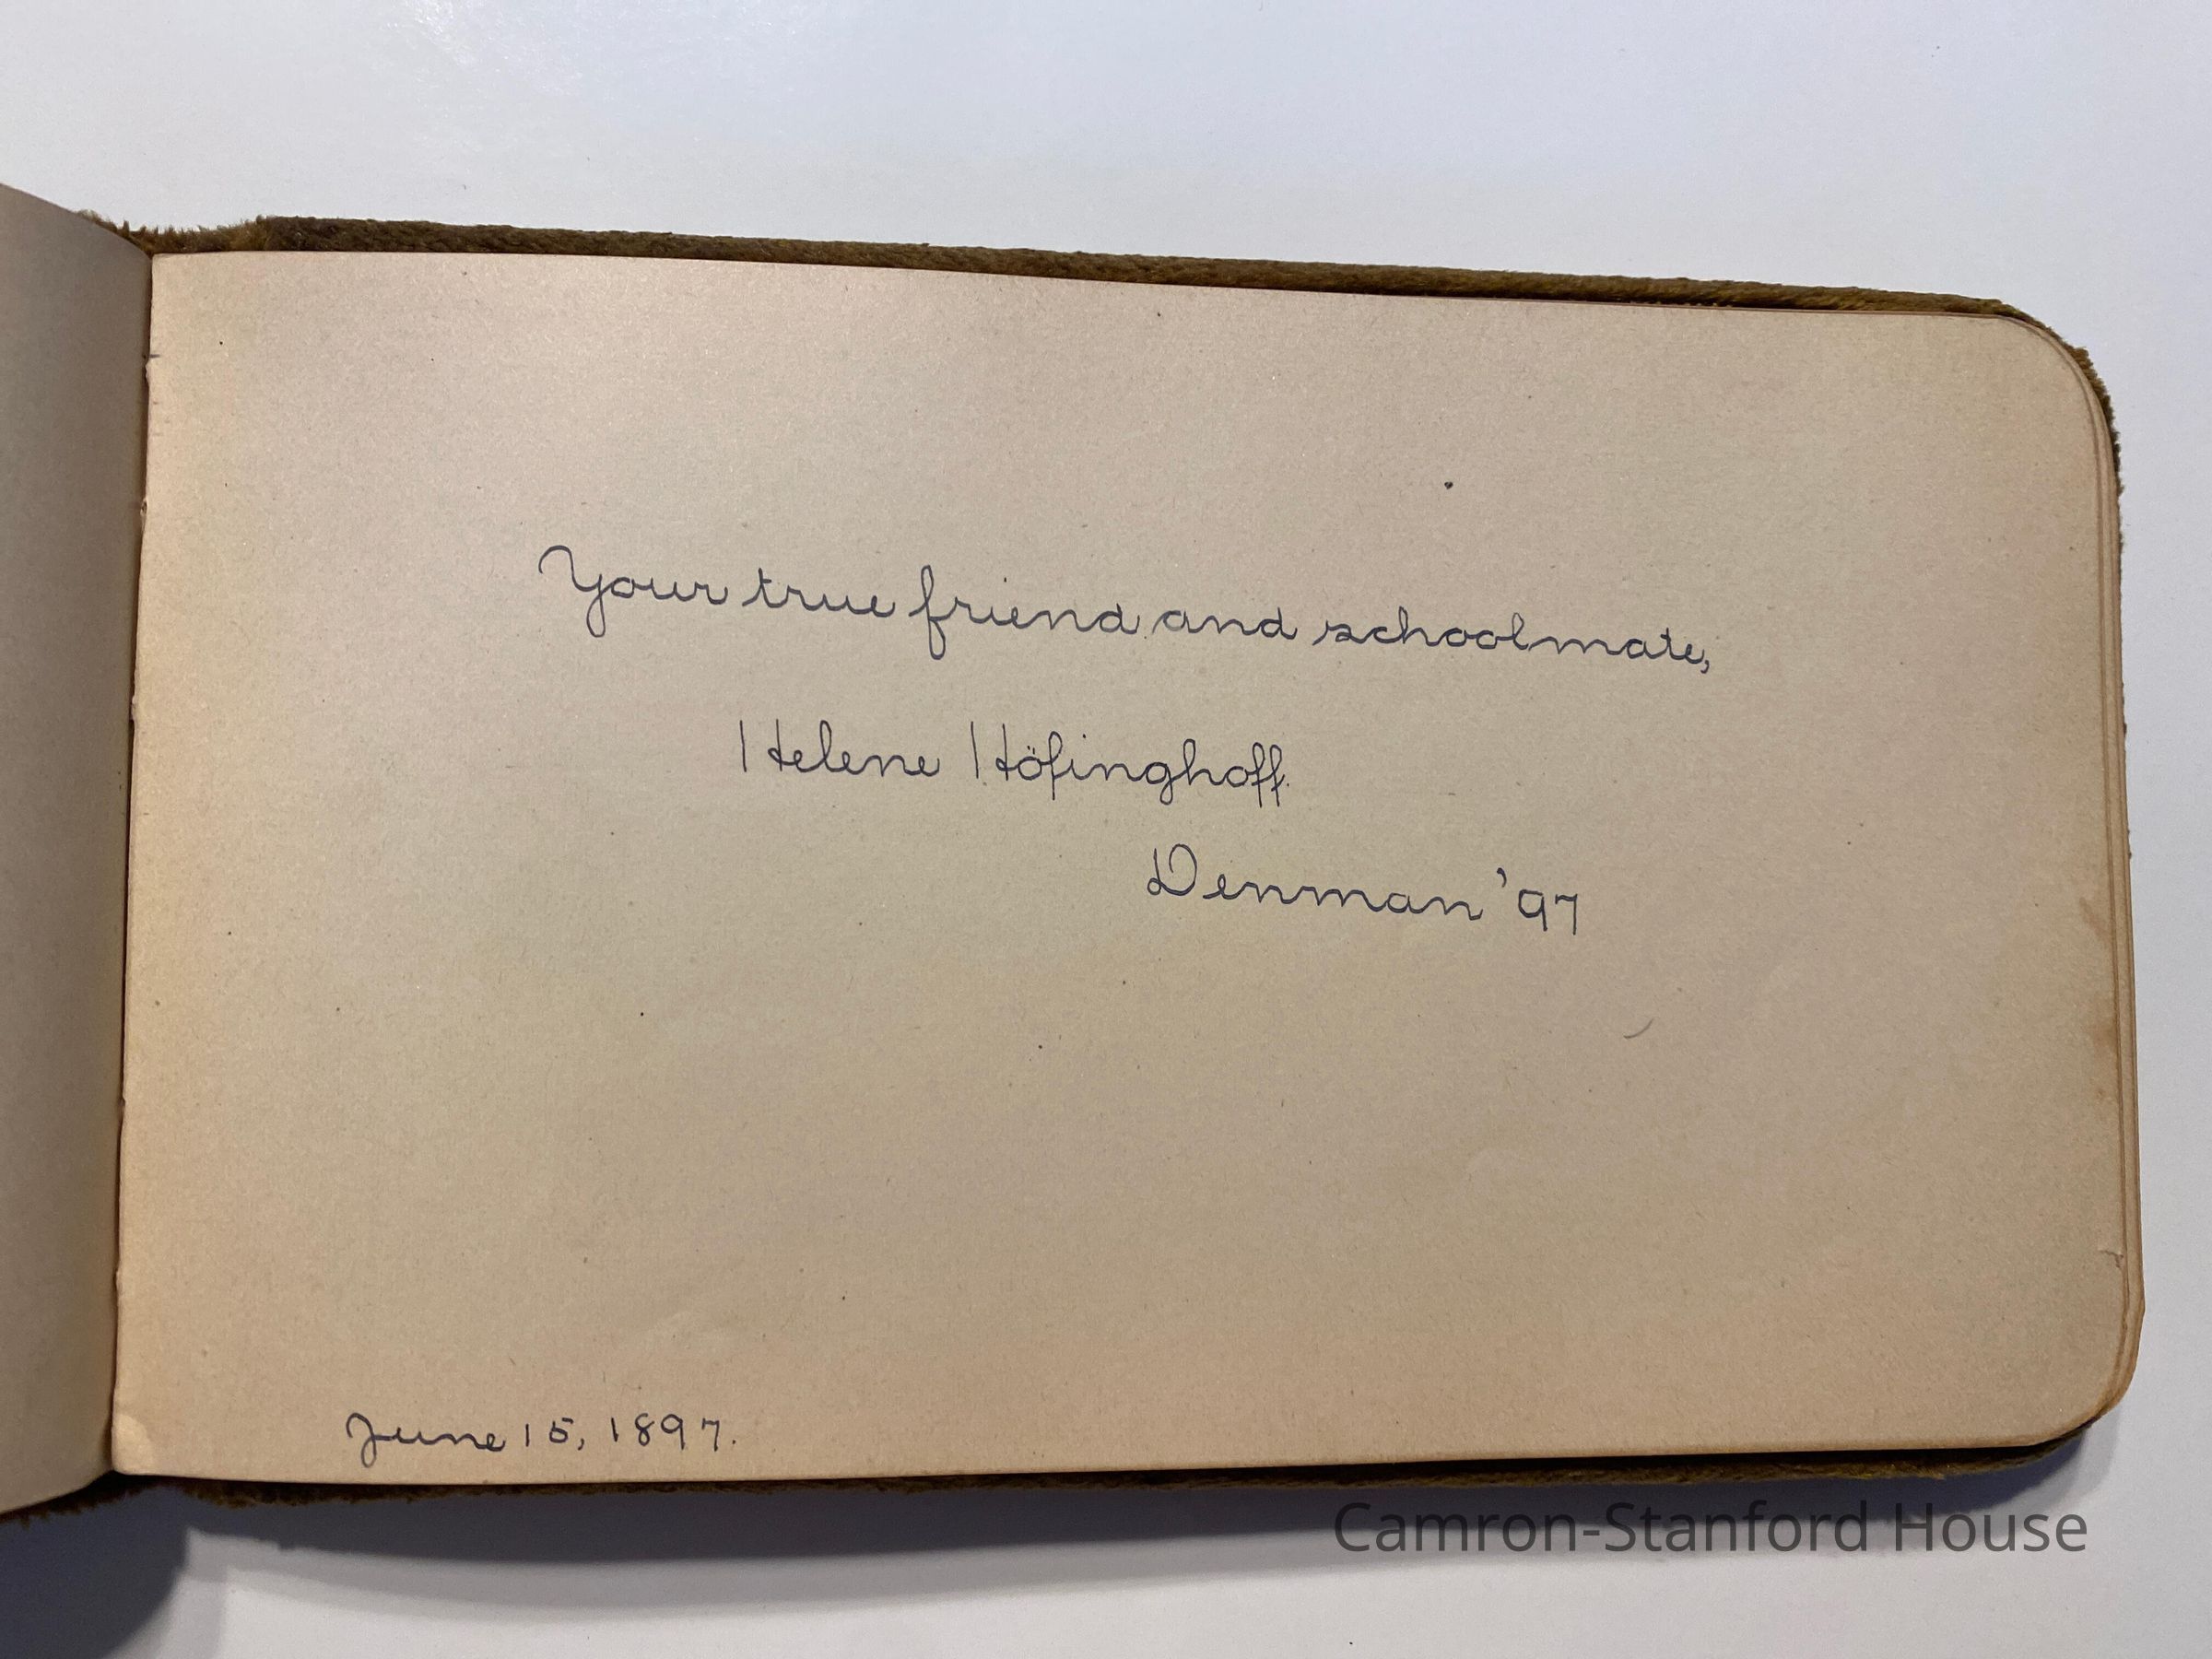 Your true friend and schoolmate,
Helene Höfinghoff.
Denman '97
June 15, 1897.
Camron-Stanford House